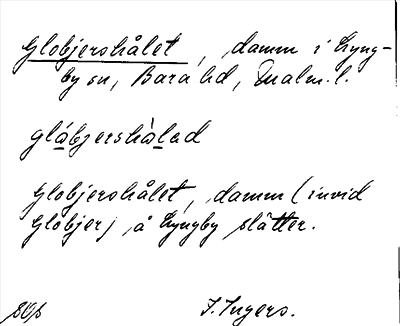 Globjershålet, damm i Lyng-
by sn, Bara hd, Malm. l.
glåbjershàlad
Globjershålet, damm (invid
Globjer) å Lyngby slätter.
I. Ingers.